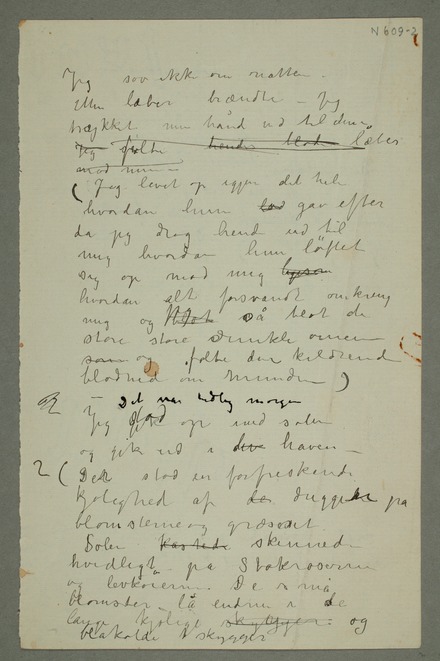 N 609-2
Jeg sov ikke om natten.
Ette læber brændte – Jeg
trækket min hånd ud til den
Jeg følte hendes bløde læber
mod min –
( Jeg levet op igjen det hele
hvordan hun lod gav efter
da jeg drog hend ud til
mig hvordan hun løftet
sig op mod mig
hvordan alt forsvandt omkring
mig og blot så blot de
store store dunkle øinene
som og følte den kildrende
blødhed om munden )
2 – Det var tidlig morgen
Jeg stod op med solen
og gik ud i haven –
2 ( Det stod en forfriskende
kjølighed af de duggen på
blomsterne og græsset.
Solen kastede skinnede
hvidligt på Stokroserne
og levkøierne. De små
blomster lå endnu i de
lange kjølige skygger og
blåkolde skygger